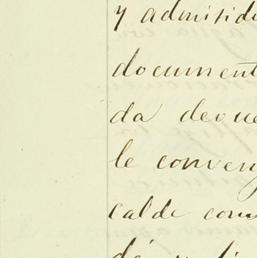 y admitid
document
da devue
le conven
calde com